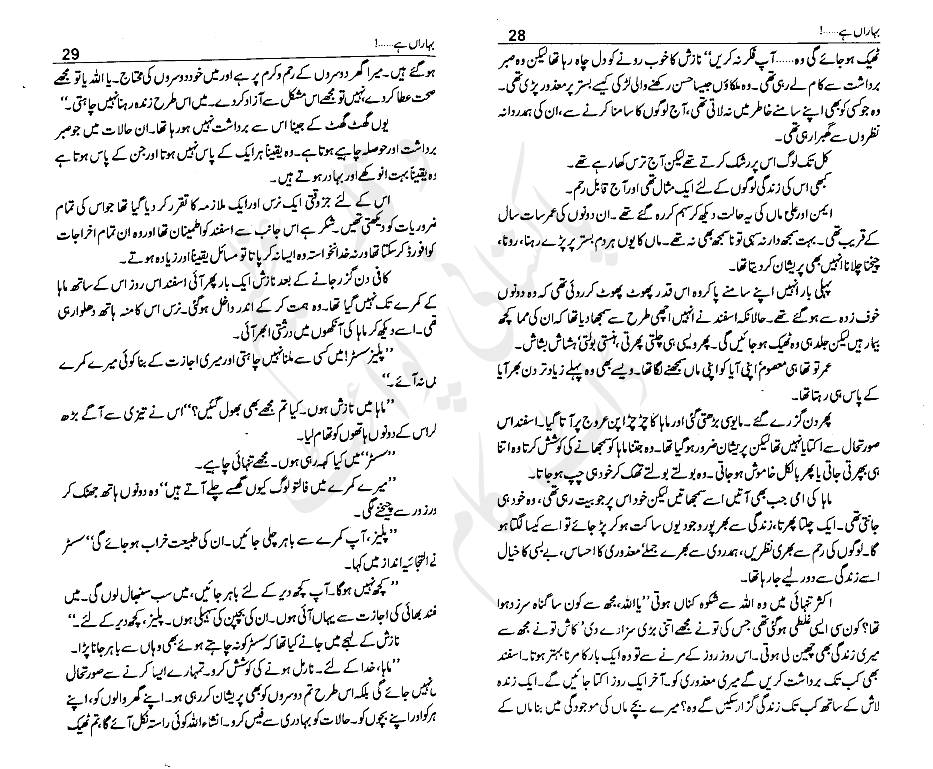 بہاراں ہے......!
28
ٹھیک ہو جائے گی وہ...... آپ فکر نہ کریں‘‘ نازش کا خوب رونے کو دل چاہ رہا تھا لیکن وہ صبر
برداشت سے کام لے رہی تھی۔ وہ ملکاؤں جیسا حسن رکھنے والی لڑکی کیسے بستر پر معذور پڑی تھی۔
وہ جو کسی کو بھی اپنے سامنے خاطر میں نہ لاتی تھی، آج لوگوں کا سامنا کرنے سے، ان کی ہمدردانہ
نظروں سے گھبرا رہی تھی۔
کل تک لوگ اس پر رشک کرتے تھے لیکن آج ترس کھا رہے تھے۔
کبھی اس کی زندگی لوگوں کے لئے ایک مثال تھی اور آج قابل رحم۔
ایمن اور علی ماں کی یہ حالت دیکھ کر سہم کر رہ گئے تھے۔ ان دونوں کی عمر سات سال
کے قریب تھی۔ بہت سمجھدار نہ سہی تو نا سمجھ بھی نہ تھے۔ ماں کا یوں ہر دم بستر پر پڑے رہنا، رونا،
چیخنا چلانا انہیں بھی پریشان کر دیتا تھا۔
پہلی بار انہیں اپنے سامنے پا کر وہ اس قدر پھوٹ پھوٹ کر روئی تھی کہ وہ دونوں
خوف زدہ سے ہو گئے تھے۔ حالانکہ اسفند نے انہیں اچھی طرح سے سمجھا دیا تھا کہ ان کی مما کچھ
بیمار ہیں لیکن جلد ہی وہ ٹھیک ہو جائیں گی۔ پھر ویسی ہی چلتی پھرتی، ہنستی بولتی، ہشاش بشاش۔
عمر تو تھا ہی معصوم، اپنی آیا کو اپنی ماں سمجھنے لگا تھا۔ ویسے بھی وہ پہلے زیادہ تر دن بھر آیا
کے پاس ہی رہتا تھا۔
پھر دن گزرے گئے۔ مایوسی بڑھتی گئی اور ماہا کا چڑچڑاپن عروج پر آتا گیا۔ اسفند اس
صورتحال سے اکتایا نہیں تھا لیکن پریشان ضرور ہو گیا تھا۔ وہ جتنا ماہا کو سمجھانے کی کوشش کرتا وہ اتنا
ہی بپھرتی جاتی یا پھر بالکل خاموش ہو جاتی۔ وہ بولتے بولتے تھک کر خود ہی چپ ہو جاتا۔
ماہا کی امی جب بھی آتیں اسے سمجھاتیں لیکن خود اس پر جو بیت رہی تھی، وہ خود ہی
جانتی تھی۔ ایک چلتا پھرتا، زندگی سے بھرپور وجود یوں ساکت ہو کر پڑ جائے تو اسے کیسا لگتا ہو
گا۔ لوگوں کی رحم سے بھری نظریں، ہمدردی سے بھرے جملے، معذوری کا احساس، بے بسی کا خیال
اسے زندگی سے دور لیے جا رہا تھا۔
اکثر تنہائی میں وہ اللہ سے شکوہ کناں ہوتی ’’یا اللہ، مجھ سے کون سا گناہ سرزد ہوا
تھا؟ کون سی ایسی غلطی ہو گئی تھی جس کی تو نے مجھے اتنی بڑی سزا دے دی‘ کاش تو نے مجھ سے
میری زندگی بھی چھین لی ہوتی۔ اس روز روز کے مرنے سے تو وہ ایک بار کا مرنا بہتر ہوتا۔ اسفند
بھی کب تک برداشت کریں گے میری معذوری کو۔ آخر ایک روز اکتا جائیں گے۔ ایک زندہ
لاش کے ساتھ کب تک زندگی گزار سکیں گے وہ؟ میرے بچے ماں کی موجودگی میں بنا ماں کے
بہاراں ہے......!
29
ہو گئے ہیں۔ میرا گھر دوسروں کے رحم و کرم پر ہے اور میں خود دوسروں کی محتاج۔ یا اللہ یا تو مجھے
صحت عطا کر دے نہیں تو مجھے اس مشکل سے آزاد کر دے۔ میں اس طرح زندہ رہنا نہیں چاہتی۔‘‘
یوں گھٹ گھٹ کے جینا اس سے برداشت نہیں ہو رہا تھا۔ ان حالات میں جو صبر
برداشت اور حوصلہ چاہیے ہوتا ہے۔ وہ یقیناً ہر ایک کے پاس نہیں ہوتا اور جن کے پاس ہوتا ہے
وہ یقیناً بہت انوکھے اور بہادر ہوتے ہیں۔
اس کے لئے جزوقتی ایک نرس اور ایک ملازمہ کا تقرر کر دیا گیا تھا جو اس کی تمام
ضروریات کو دیکھتی تھیں۔ شکر ہے اس جانب سے اسفند کو اطمینان تھا اور وہ ان تمام اخراجات
کو افورڈ کر سکتا تھا ورنہ خدانخواستہ وہ ایسا نہ کر پاتا تو مسائل یقیناً اور زیادہ ہوتے۔
کافی دن گزر جانے کے بعد نازش ایک بار پھر آئی اسفند اس روز اس کے ساتھ ماہا
کے کمرے تک نہیں گیا تھا۔ وہ ہمت کر کے اندر داخل ہو گئی۔ نرس اس کا منہ ہاتھ دھلوا رہی
تھی۔ اسے دیکھ کر ماہا کی آنکھوں میں درشتی ابھر آئی۔
’’پلیز سسٹر! میں کسی سے ملنا نہیں چاہتی اور میری اجازت کے بنا کوئی میرے کمرے
ں نہ آئے۔‘‘
’’ماہا میں نازش ہوں۔ کیا تم مجھے بھی بھول گئیں؟‘‘ اس نے تیزی سے آگے بڑھ
لر اس کے دونوں ہاتھوں کو تھام لیا۔
’’سسٹر‘‘ میں کیا کہہ رہی ہوں۔ مجھے تنہائی چاہیے۔
’’میرے کمرے میں فالتو لوگ کیوں گھسے چلے آتے ہیں‘‘ وہ دونوں ہاتھ جھٹک کر
ور زور سے چیخنے لگی۔
’’پلیز، آپ کمرے سے باہر چلی جائیں۔ ان کی طبیعت خراب ہو جائے گی‘‘ سسٹر
نے التجائیہ انداز میں کہا۔
’’کچھ نہیں ہوگا۔ آپ کچھ دیر کے لئے باہر جائیں، میں سب سنبھال لوں گی۔ میں
فند بھائی کی اجازت سے یہاں آئی ہوں۔ ان کی بچپن کی سہیلی ہوں۔ پلیز، کچھ دیر کے لئے۔‘‘
نازش کے لہجے میں جانے کیا تھا کہ سسٹر کو نہ چاہتے ہوئے بھی وہاں سے باہر جانا پڑا۔
’’ماہا، خدا کے لئے۔ نارمل ہونے کی کوشش کرو۔ تمہارے ایسا کرنے سے صورتحال
نہیں جائے گی بلکہ اس طرح تم دوسروں کو بھی پریشان کر رہی ہو۔ اپنے گھر والوں کو، اپنے
ہر کو اور اپنے بچوں کو۔ حالات کو بہادری سے فیس کرو۔ انشاء اللہ کوئی راستہ نکل آئے گا، تم ٹھیک